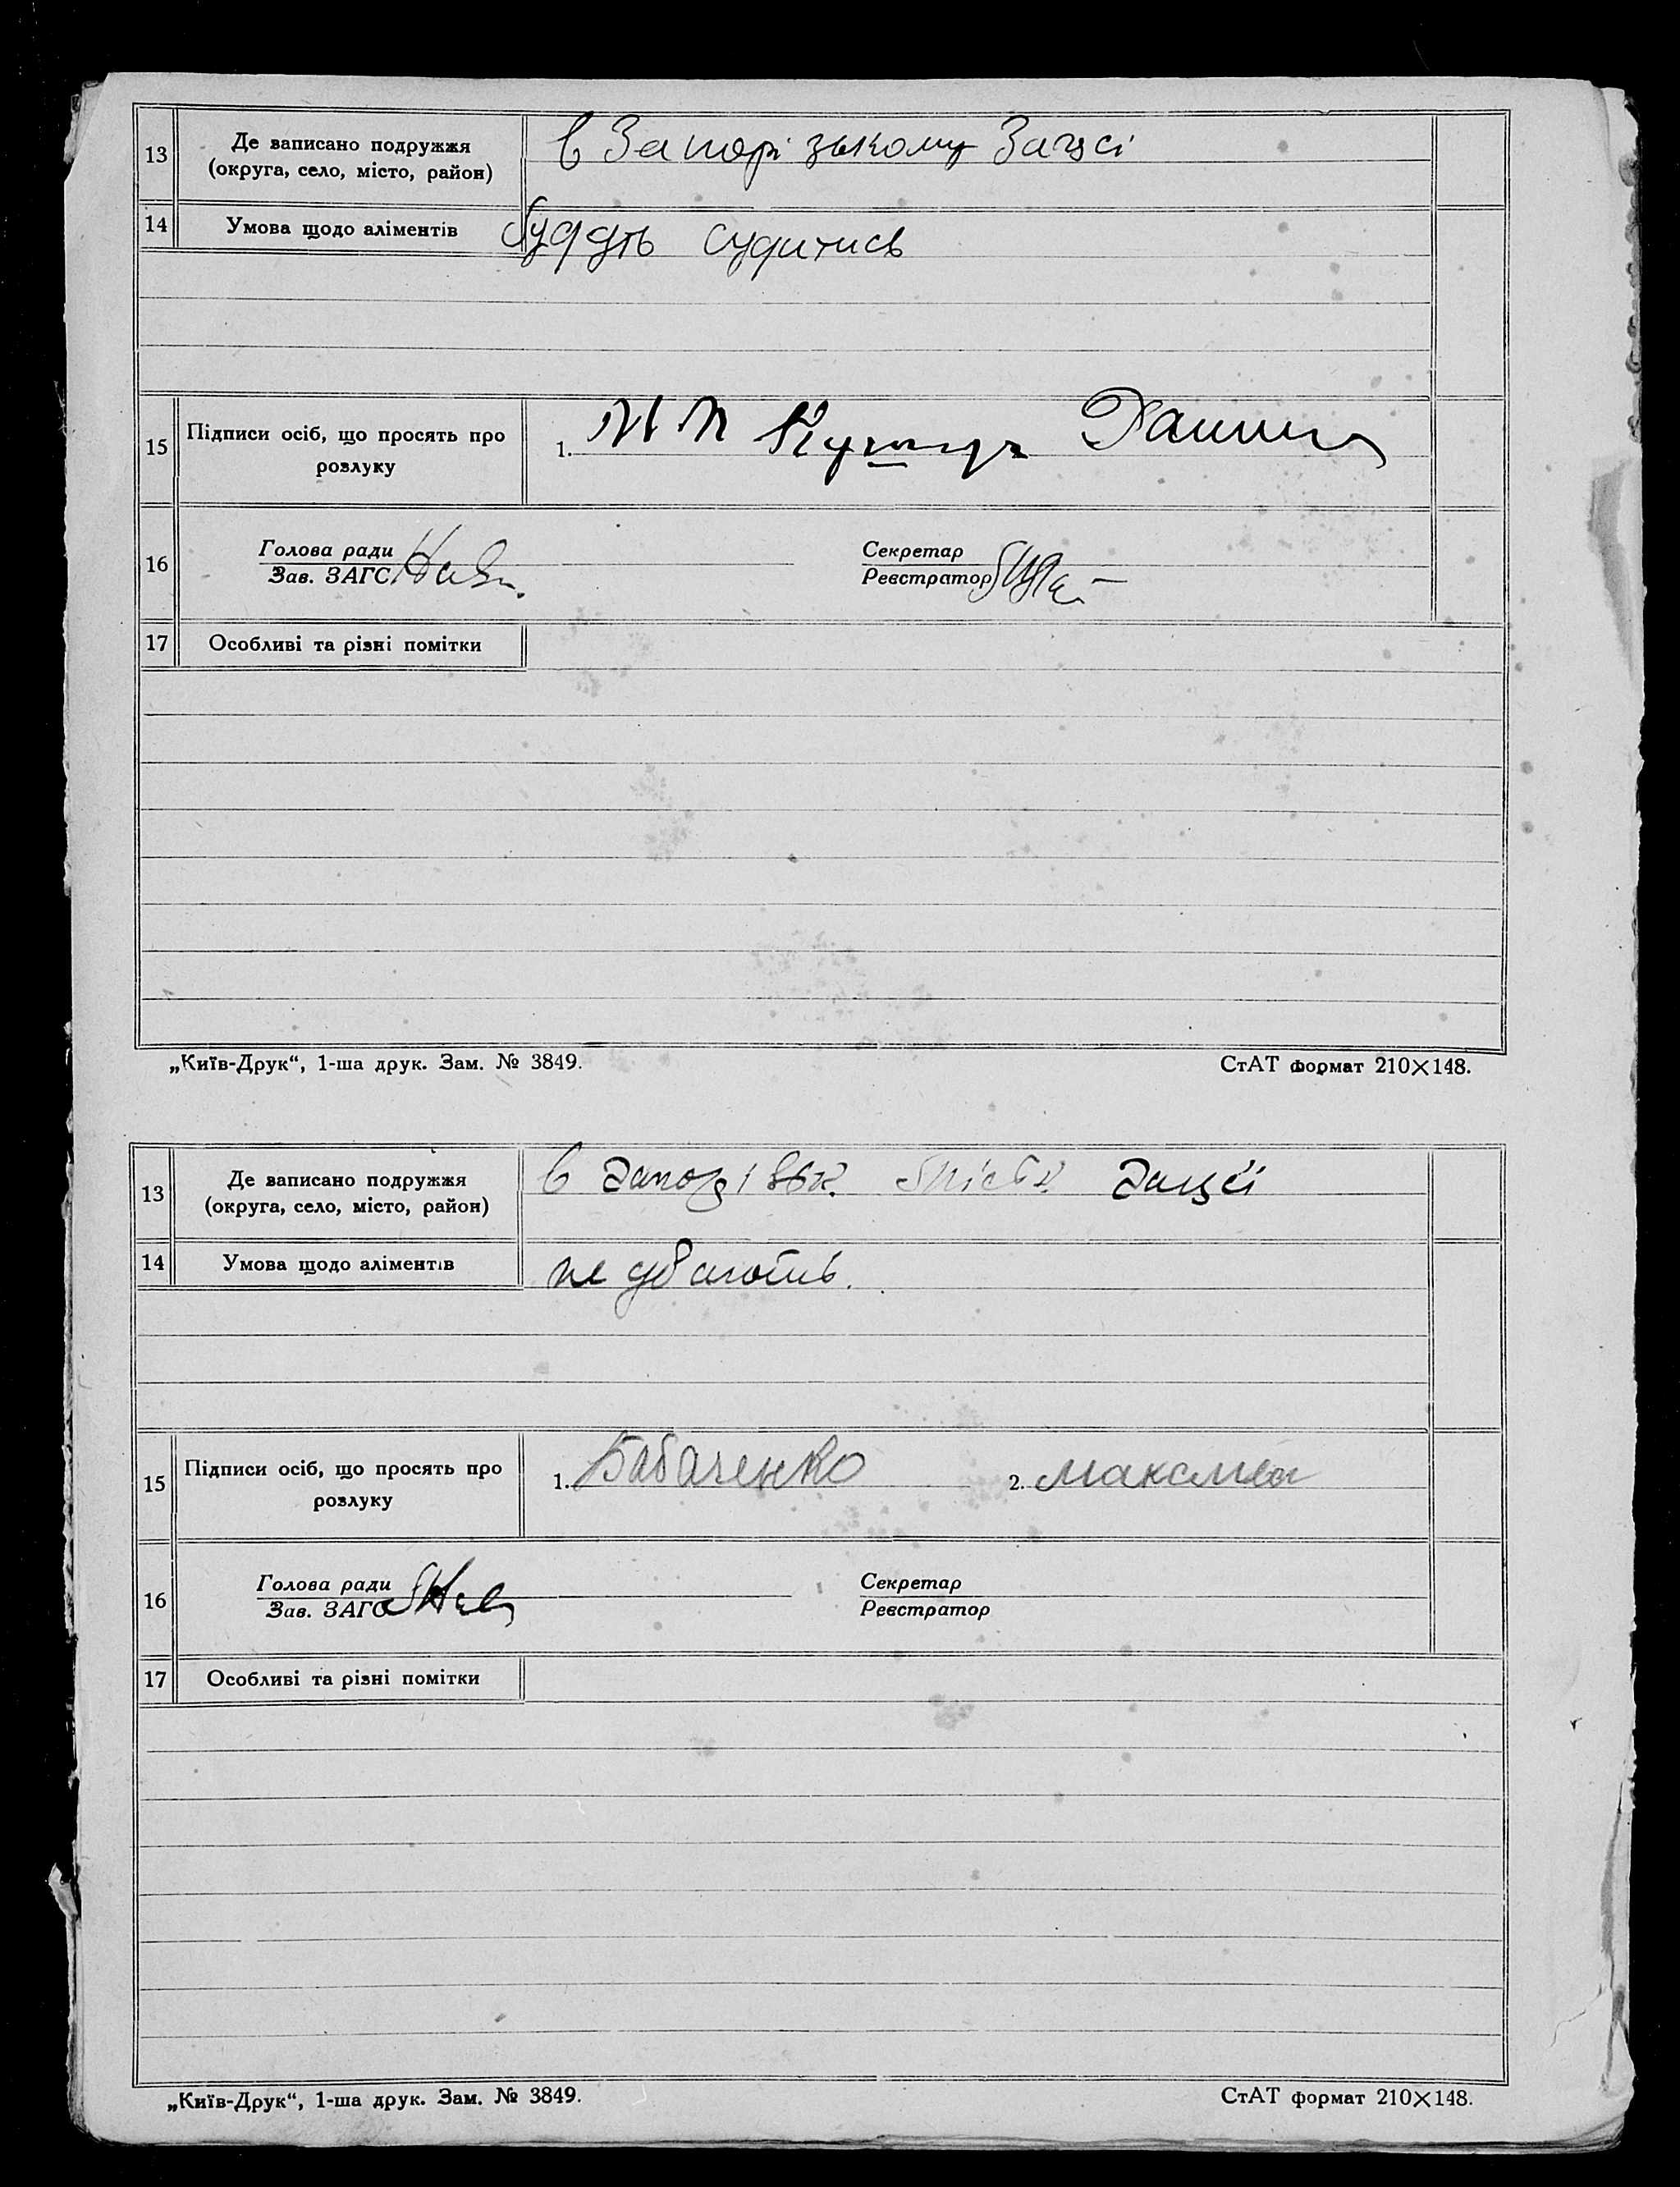 13 Де записано подружжя в Запорізькому Загсі
(округа, село, місто, район)
14 Умова щодо аліментів будуть судитись
15 Підписи осіб, що просять про 1.
розлуку
16 Голова ради Секретар
Зав. ЗАГС Реєстратор
17 Особливі та різні помітки
„Київ-Друк“, 1-ша друк. Зам. № 3849. СтАТ формат 210×148.
13 Де записано подружжя в Запорізьк. Загсі
(округа, село, місто, район)
14 Умова щодо аліментів не дбають.
15 Підписи осіб, що просять про 1. Бабаченко 2.
розлуку
16 Голова ради Секретар
Зав. ЗАГС Реєстратор
17 Особливі та різні помітки
„Київ-Друк“, 1-ша друк. Зам. № 3849. СтАТ формат 210×148.